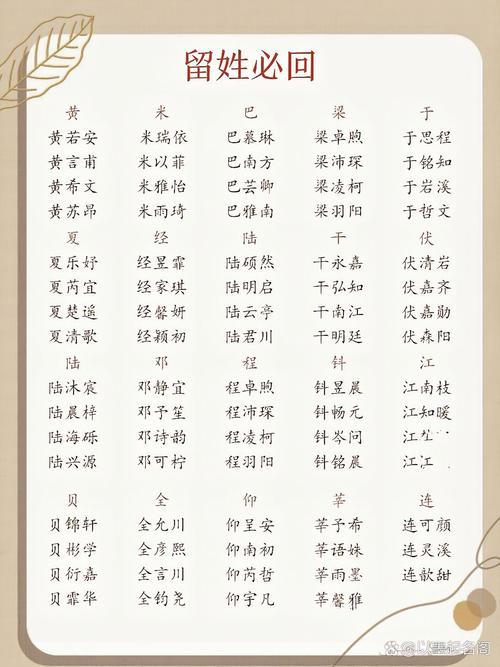 留姓必回
黄 米 巴 梁 于
黄若安 米瑞依 巴慕琳 梁卓煦 于思程
黄言甫 米以菲 巴南方 梁沛琛 于铭知
黄希文 米雅怡 巴芸卿 梁凌柯 于岩溪
黄苏昂 米雨琦 巴雅南 梁羽阳 于哲文
夏 经 陆 干 伏
夏乐妤 经昱霏 陆硕然 干永嘉 伏清岩
夏芮宜 经家琪 陆明启 干弘知 伏嘉齐
夏楚遥 经馨妍 陆云亭 干南江 伏嘉勋
夏清歌 经颖初 陆君川 干明廷 伏森阳
陆 邓 程 钭 江
陆沐宸 邓静宜 程卓煦 钭昱晨 江南枝
陆晨梓 邓予笙 程沛琛 钭畅元 江知暖
陆海砾 邓诗韵 程凌柯 钭岑问 江
陆兴源 邓可柠 程羽阳 钭铭晨 江江
贝 全 仰 莘 连
贝锦轩 全允川 仰呈安 莘予希 连可颜
贝彬学 全彦熙 仰南初 莘语姝 连灵溪
贝衍嘉 全言川 仰芮哲 莘雨墨 连歆甜
贝霏华 全钧尧 仰宇凡 莘馨雅
@以墨起名阁